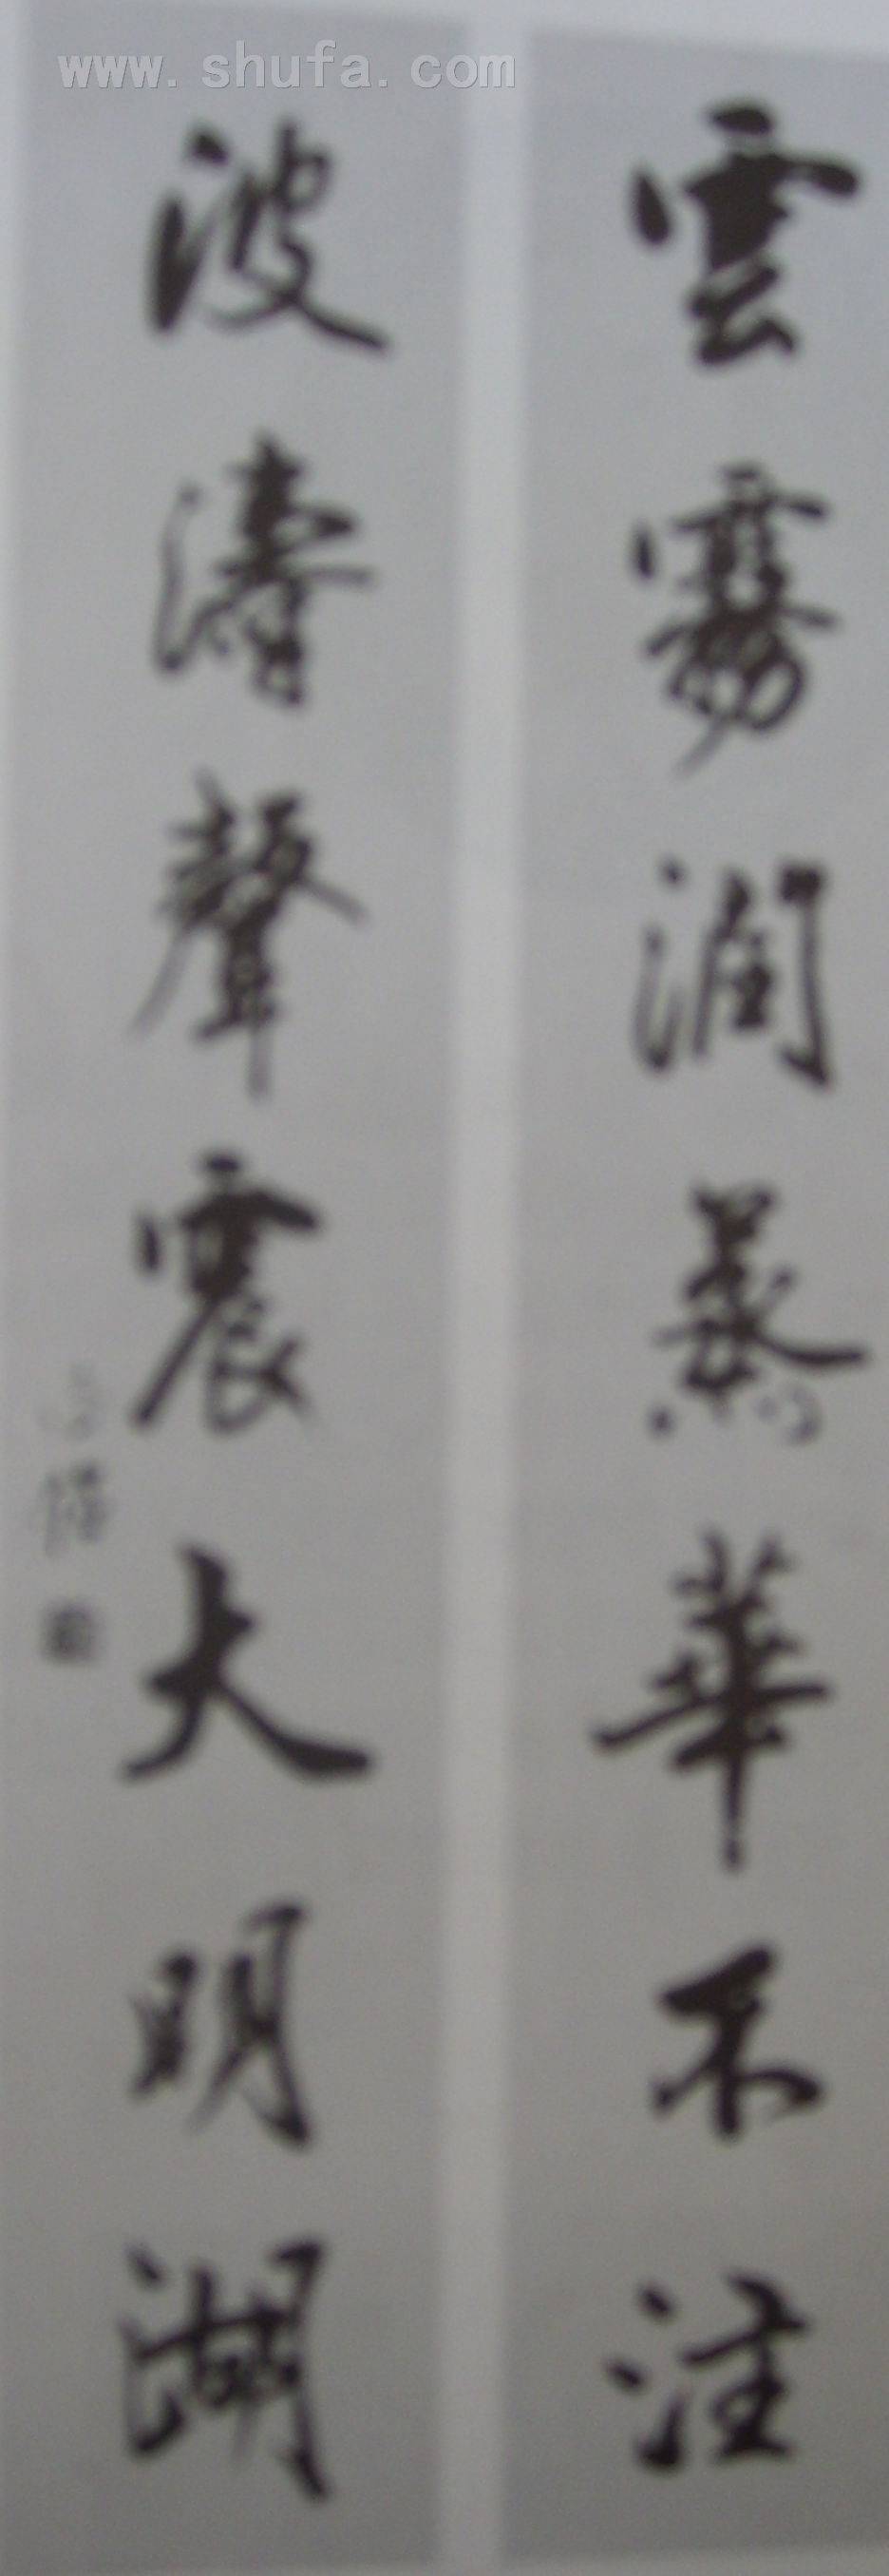 www.shufa.com
雲霧潤蒸華不注
波濤聲震大明湖